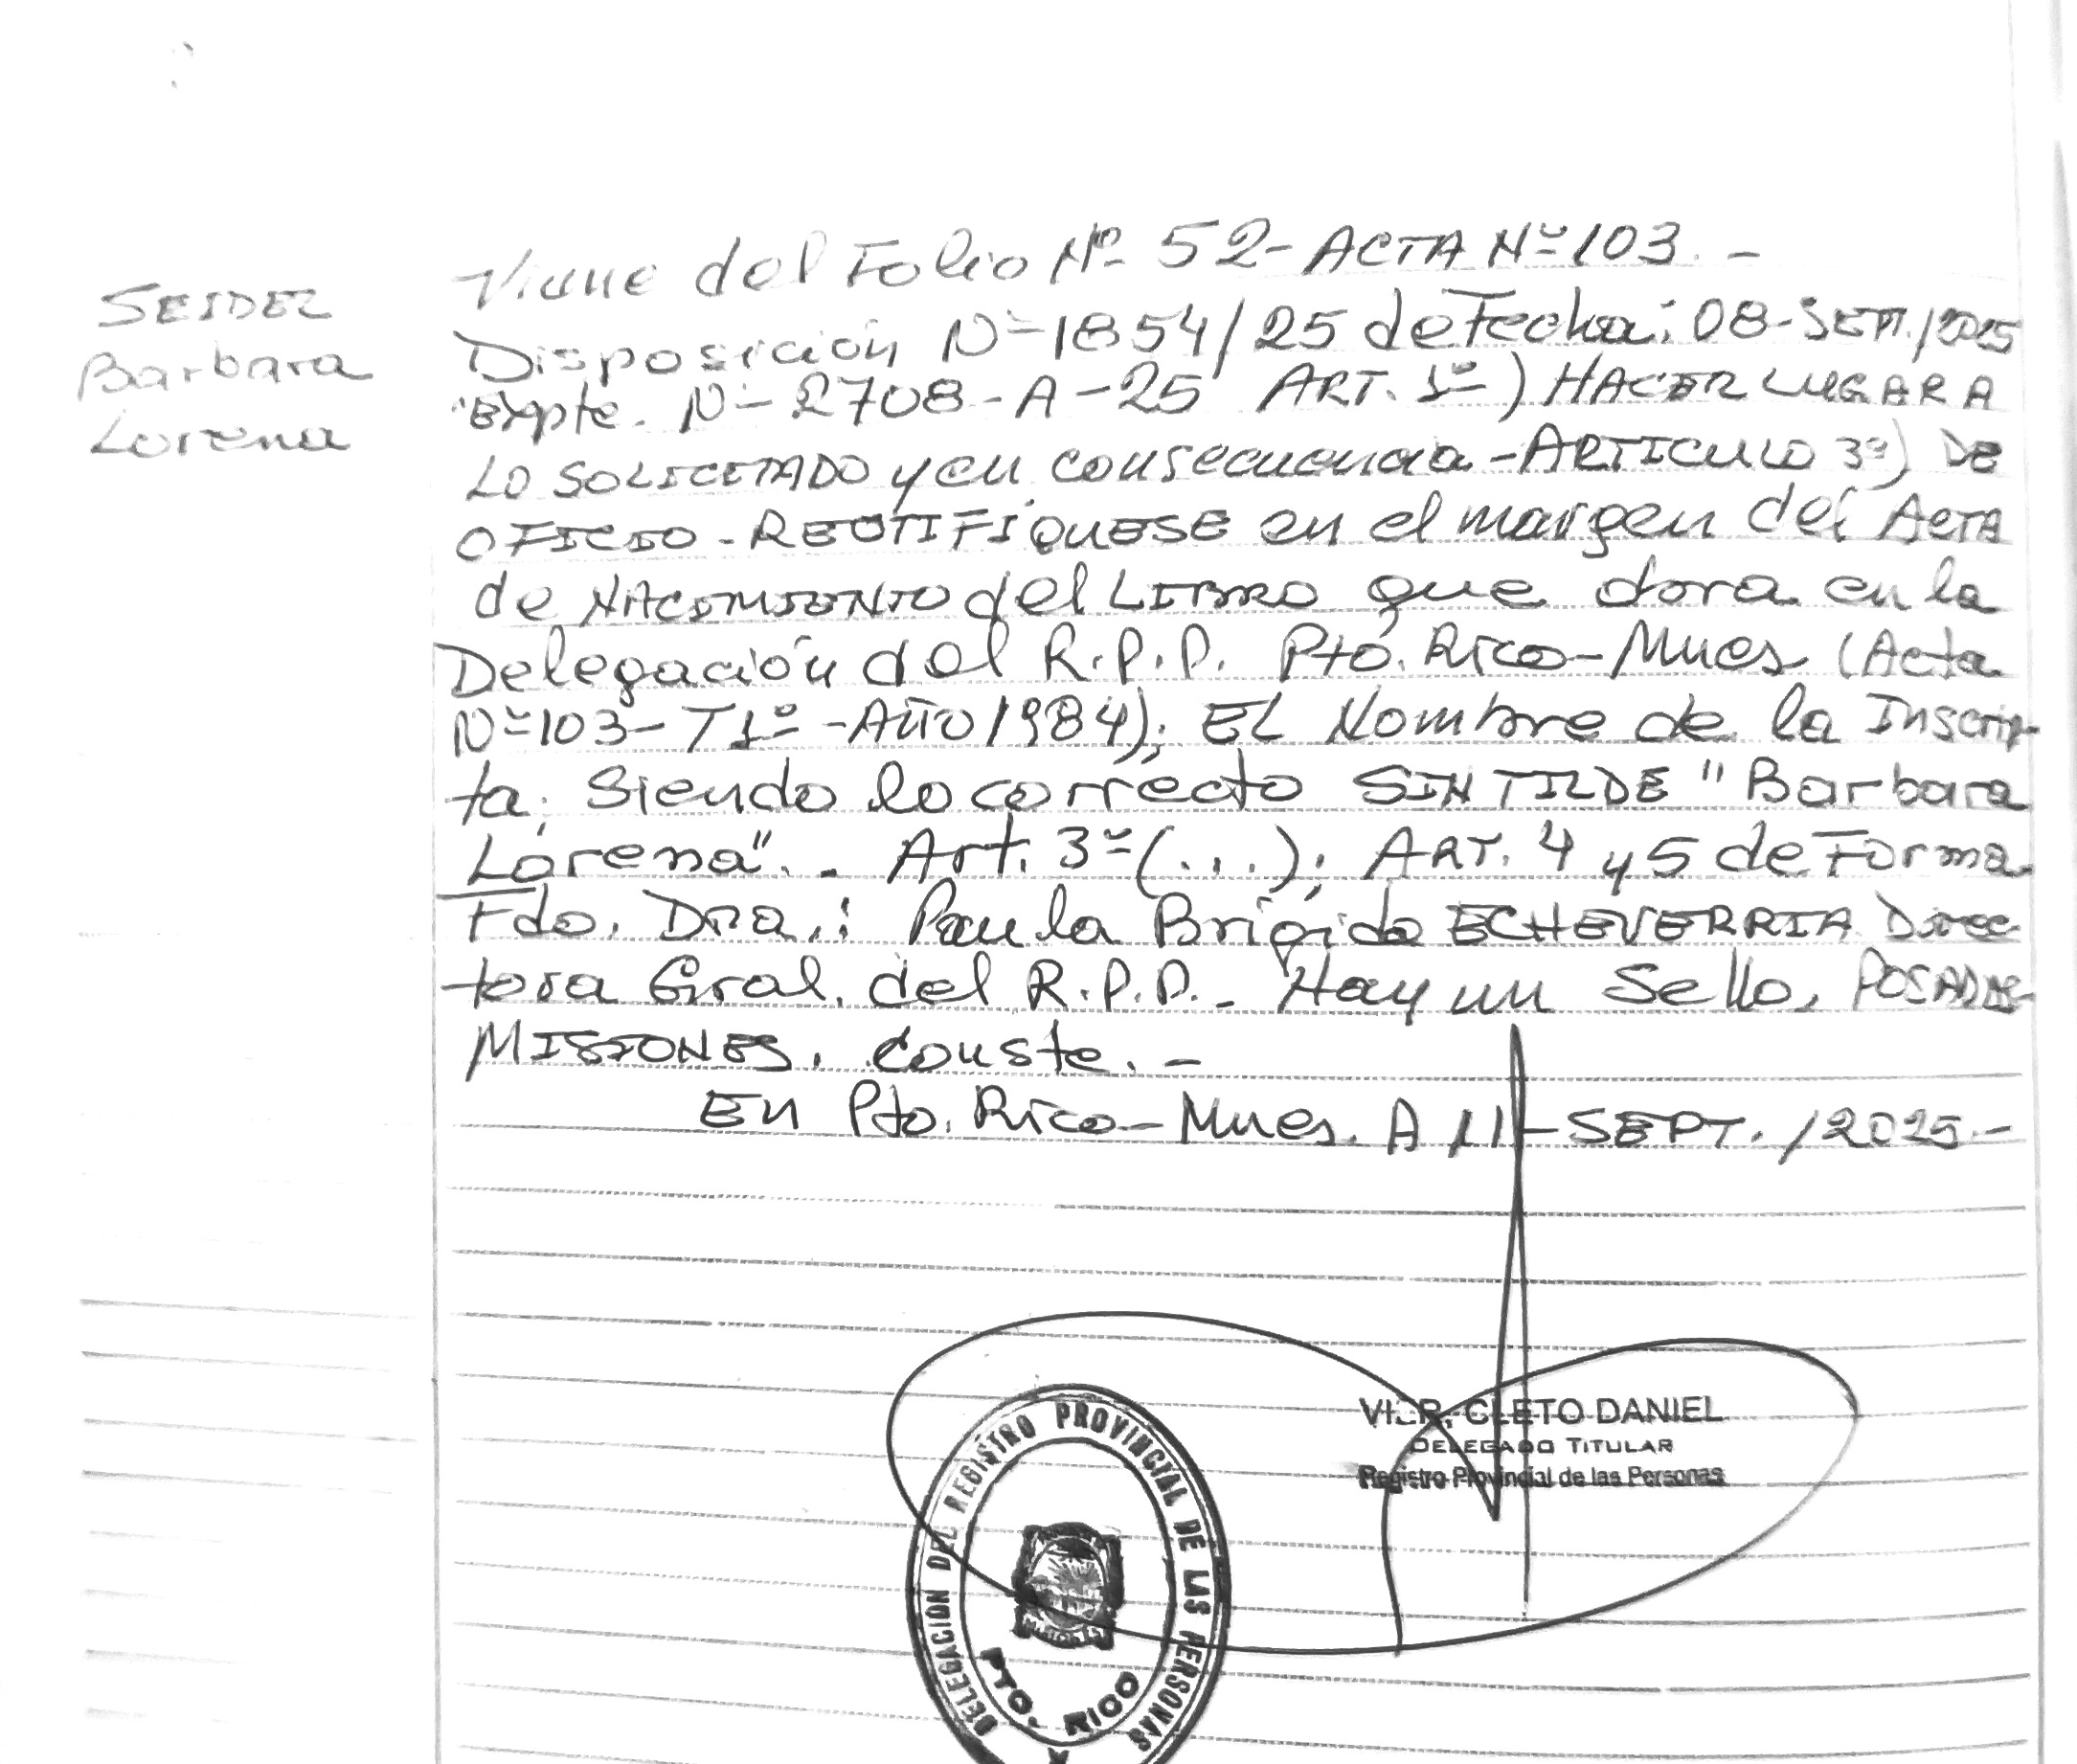 SEIDEL
Barbara
Lorena
Viene del Folio Nº 52- ACTA Nº 103. -
Disposición Nº 1854/25 de Fecha: 08-SEPT./2025
Expte. Nº 2708-A-25 ART. 1º) HACER LUGAR A
LO SOLICITADO y en consecuencia -ARTICULO 3º) DE
OFICIO - RECTIFIQUESE en el margen del ACTA
de NACIMIENTO del LIBRO que obra en la
Delegación del R.P.P. Pto. Rico-Mnes (Acta
Nº 103- T1º -AÑO 1984); EL Nombre de la Inscrip-
ta; Siendo lo correcto SIN TILDE "Barbara
Lorena". - Art. 3º (...); ART. 4 y 5 de Forma
Fdo. Dra.: Paula Brigida ECHEVERRIA Direc-
tora Gral. del R.P.P. - Hay un Sello. POSADAS-
MISIONES. Conste. -
EN Pto. Rico-Mnes. A 11-SEPT./2025.-
CLETO DANIEL
DELEGADO TITULAR
Registro Provincial de las Personas
DELEGACION DEL REGISTRO PROVINCIAL DE LAS PERSONAS
PTO. RICO